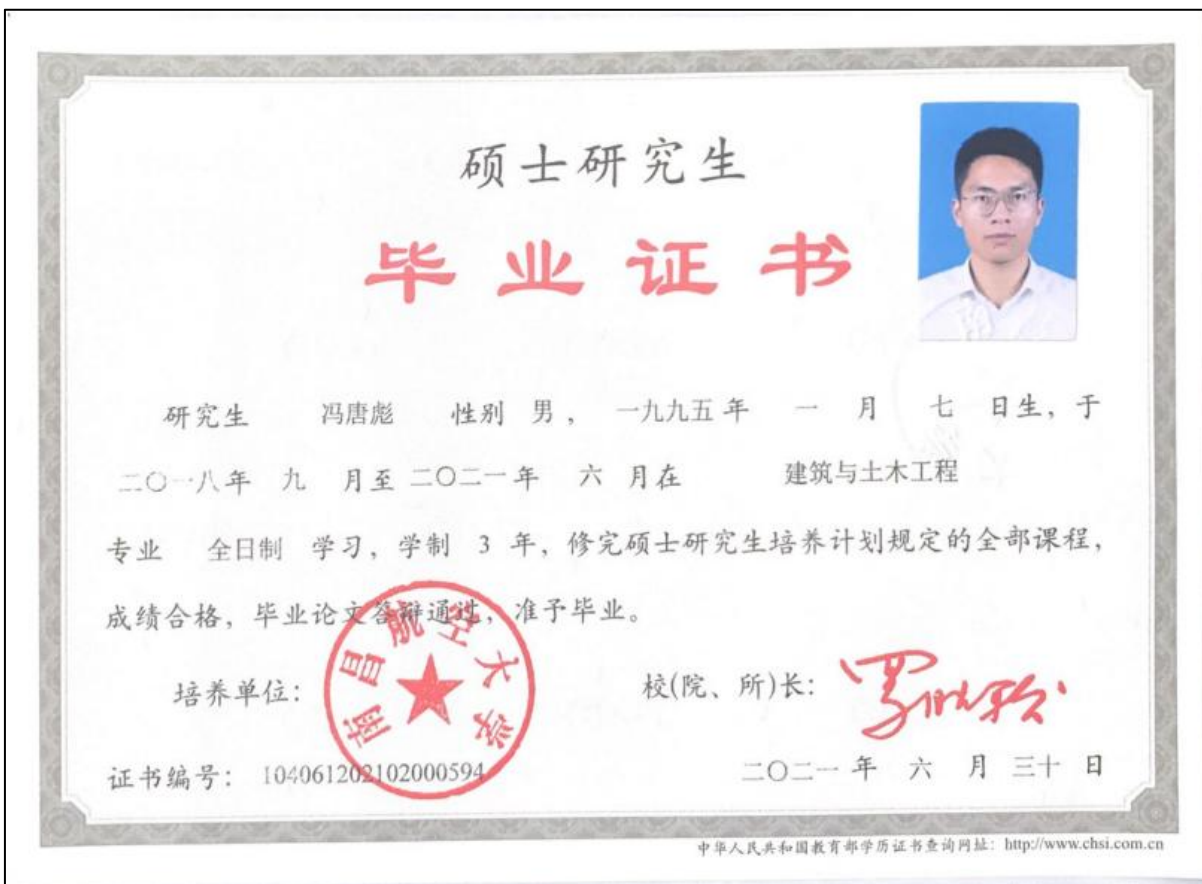 硕士研究生
毕业证书
研究生 冯唐彪 性别 男， 一九九五 年 一 月 七 日生，于
二〇一八年 九 月至 二〇二一年 六 月在 建筑与土木工程
专业 全日制 学习，学制 3 年，修完硕士研究生培养计划规定的全部课程，
成绩合格，毕业论文答辩通过，准予毕业。
南昌航空大学
培养单位： 校(院、所)长：
证书编号： 104061202102000594 二〇二一 年 六 月 三十 日
中华人民共和国教育部学历证书查询网址：http://www.chsi.com.cn